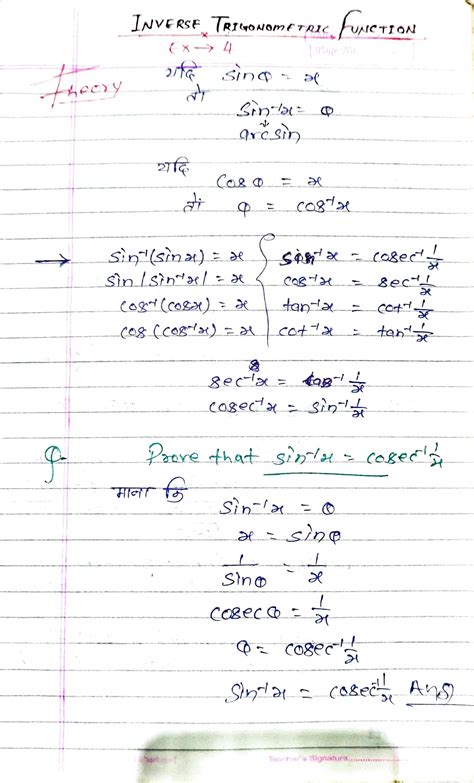 INVERSE TRIGONOMETRIC FUNCTION
Ex → 4
Theory
यदि sinθ = x
तो sin⁻¹x = θ
arcsin
यदि
cosθ = x
तो θ = cos⁻¹x
→ sin⁻¹(sinx) = x { sin⁻¹x = cosec⁻¹ 1/x
sin|sin⁻¹x| = x cos⁻¹x = sec⁻¹ 1/x
cos⁻¹(cosx) = x tan⁻¹x = cot⁻¹ 1/x
cos(cos⁻¹x) = x cot⁻¹x = tan⁻¹ 1/x
sec⁻¹x = 1/x
cosec⁻¹x = sin⁻¹ 1/x
Q- Prove that sin⁻¹x = cosec⁻¹ 1/x
माना कि
sin⁻¹x = θ
x = sinθ
1/sinθ = 1/x
cosecθ = 1/x
θ = cosec⁻¹ 1/x
sin⁻¹x = cosec⁻¹ 1/x Ans
Teacher's Signature